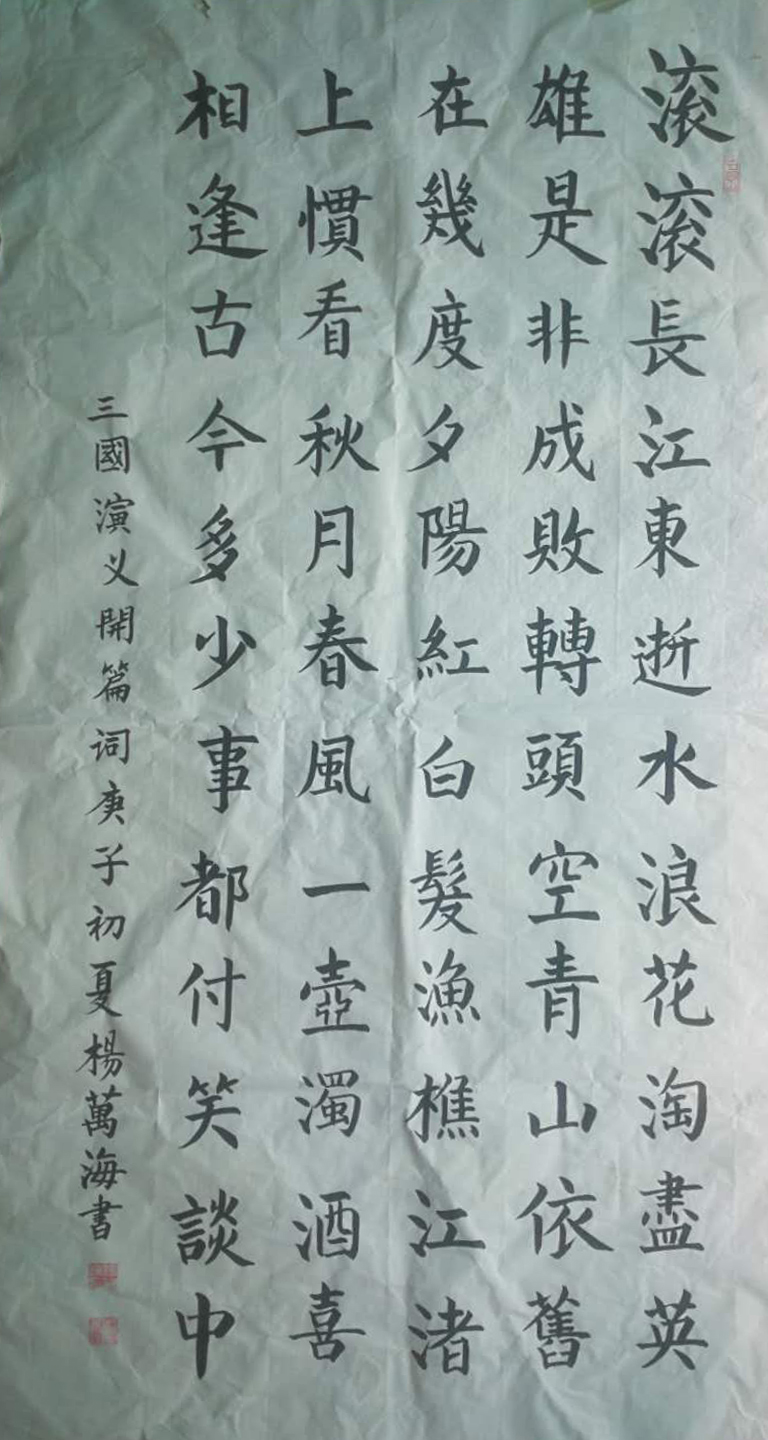 滚滚長江東逝水浪花淘盡英
雄是非成敗轉頭空青山依舊
在幾度夕陽紅白髮漁樵江渚
上慣看秋月春風一壺濁酒喜
相逢古今多少事都付笑談中
三國演义開篇词庚子初夏楊萬海書